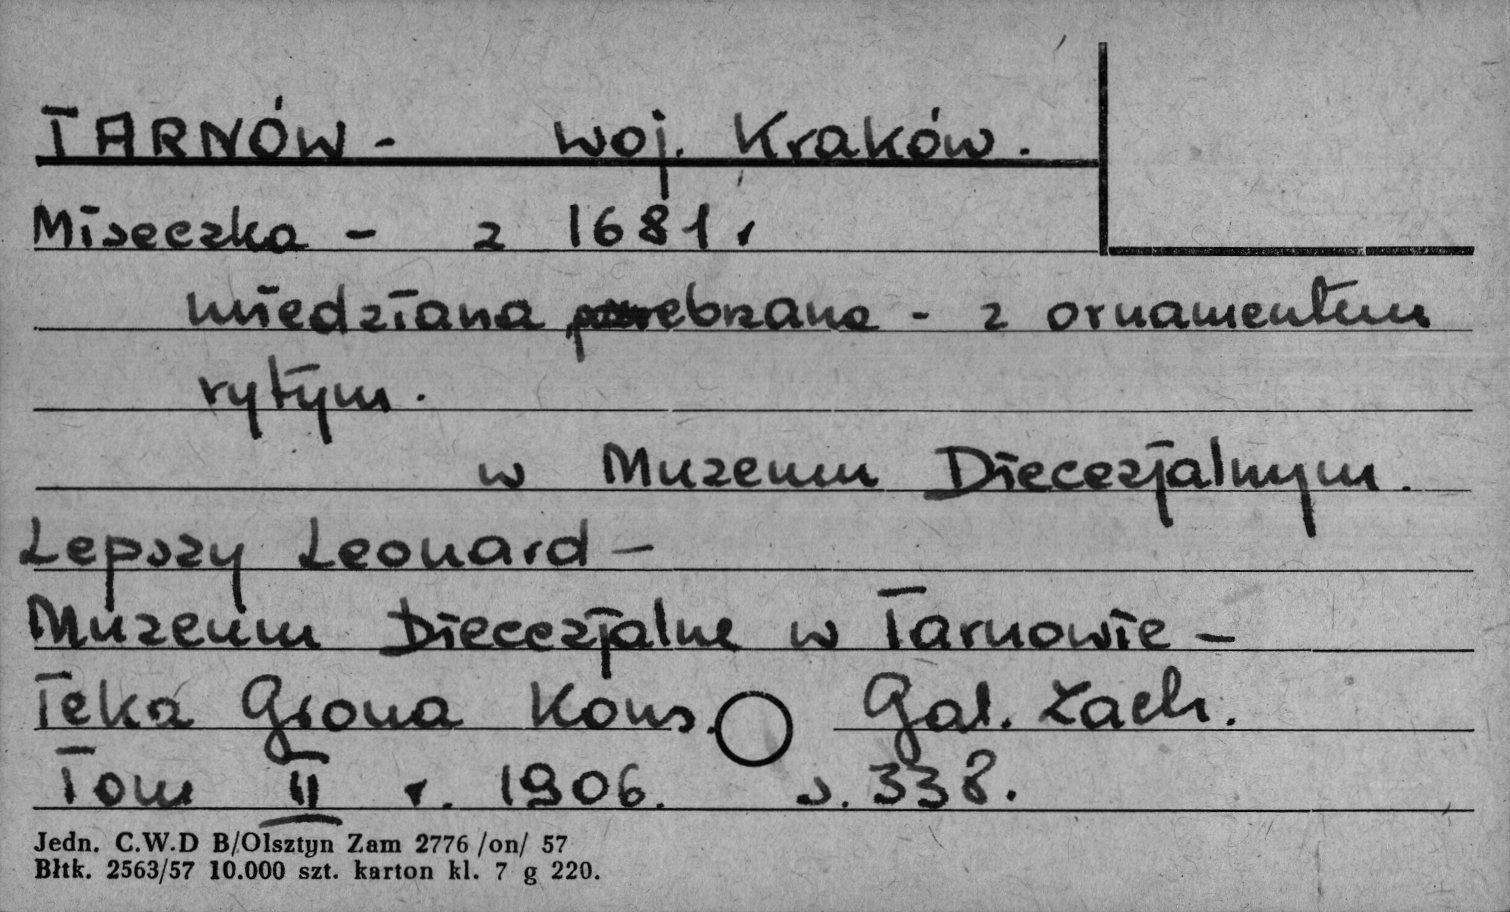 TARNÓW - woj. Kraków.
Miseczka - z 1681 r
miedziana - z ornamentem
rytym.
w Muzeum Diecezjalnym.
Lepszy Leonard -
Muzeum Diecezjalne w Tarnowie -
Teka Grona Kons. Gal. Zach.
Tom II r. 1906. s. 338.
Jedn. C.W.D B/Olsztyn Zam 2776 /on/ 57
Błtk. 2563/57 10.000 szt. karton kl. 7 g 220.